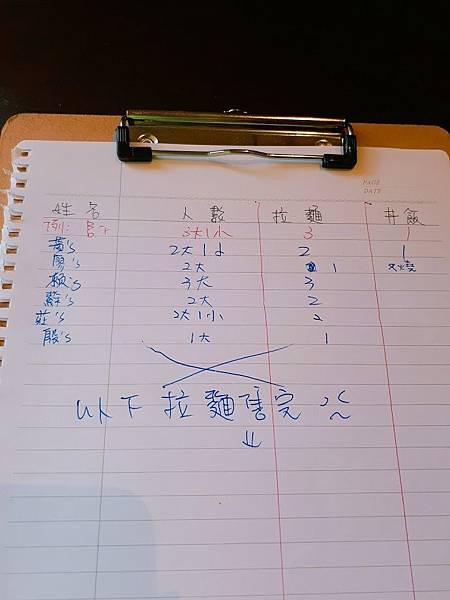 PAGE
DATE
姓名 人數 拉麵 丼飯
例: 呂's 3大1小 3 1
黃's 2大1小 2 1
廖's 2大 1 叉燒
賴's 3大 3
蘇's 2大 2
莊's 2大1小 2
殷's 1大 1
以下拉麵售完